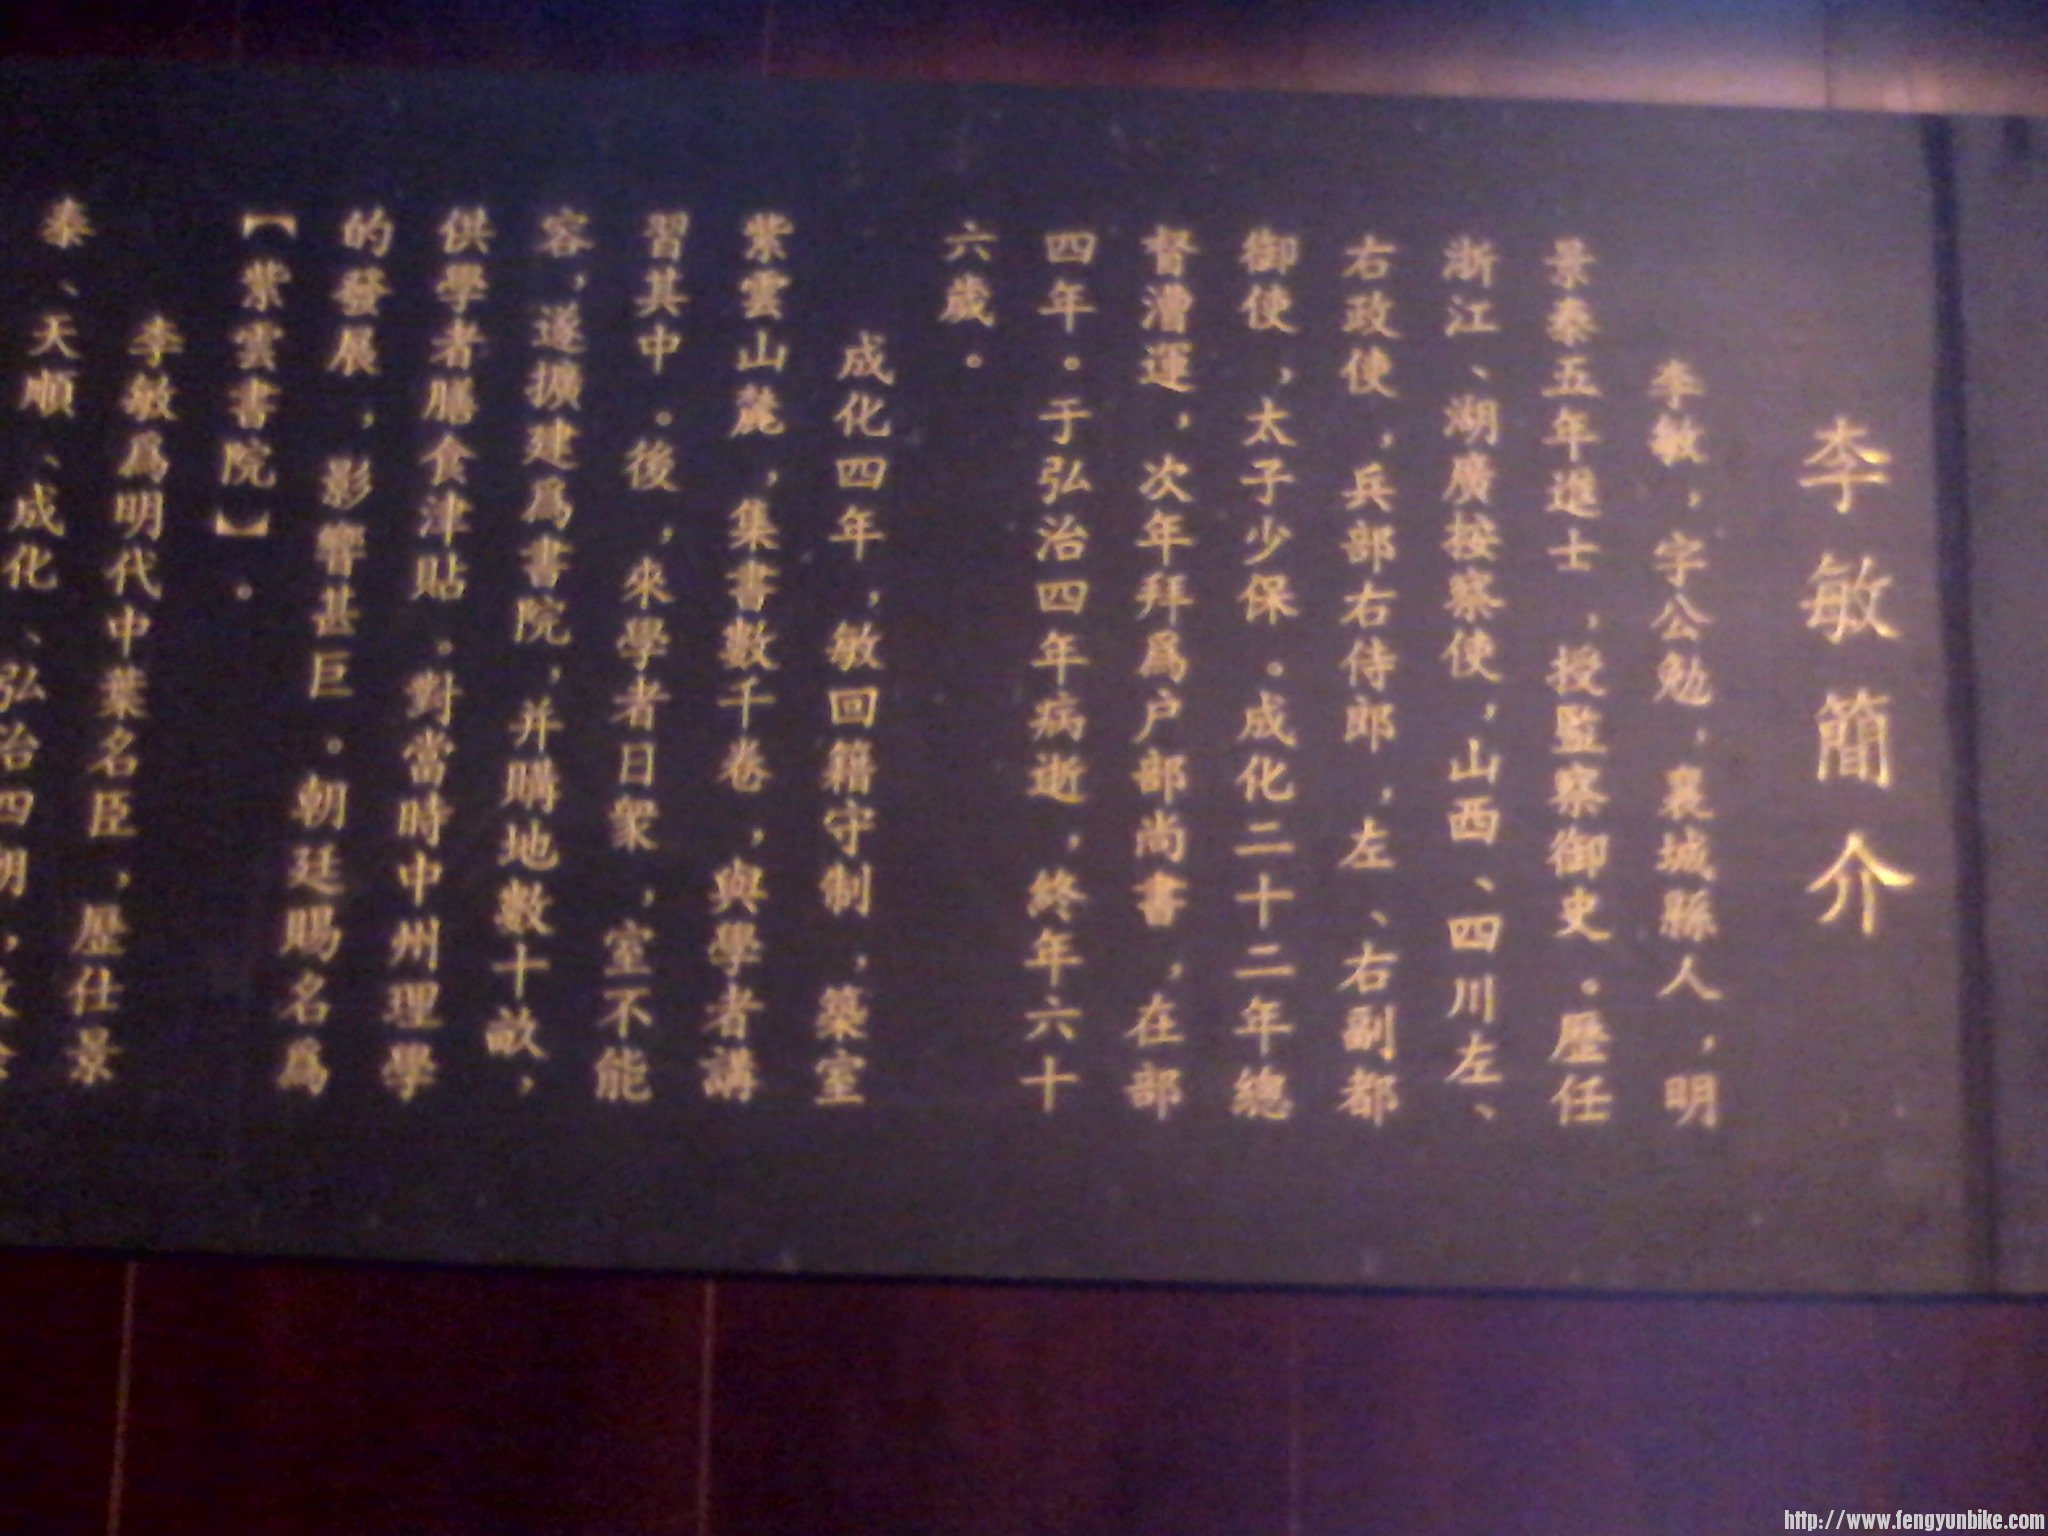 李敏簡介
李敏，字公勉，襄城縣人，明
景泰五年進士，授監察御史。歷任
浙江、湖廣按察使，山西、四川左、
右政使，兵部右侍郎，左、右副都
御使，太子少保。成化二十二年總
督漕運，次年拜爲户部尚書，在部
四年。于弘治四年病逝，終年六十
六歲。
成化四年，敏回籍守制，築室
紫雲山麓，集書數千卷，與學者講
習其中。後，來學者日衆，室不能
容，遂擴建爲書院，并購地數十畝，
供學者膳食津貼。對當時中州理學
的發展，影響甚巨。朝廷賜名爲
【紫雲書院】。
李敏爲明代中葉名臣，歷仕景
泰、天順、成化、弘治四朝，
http://www.fengyunbike.com